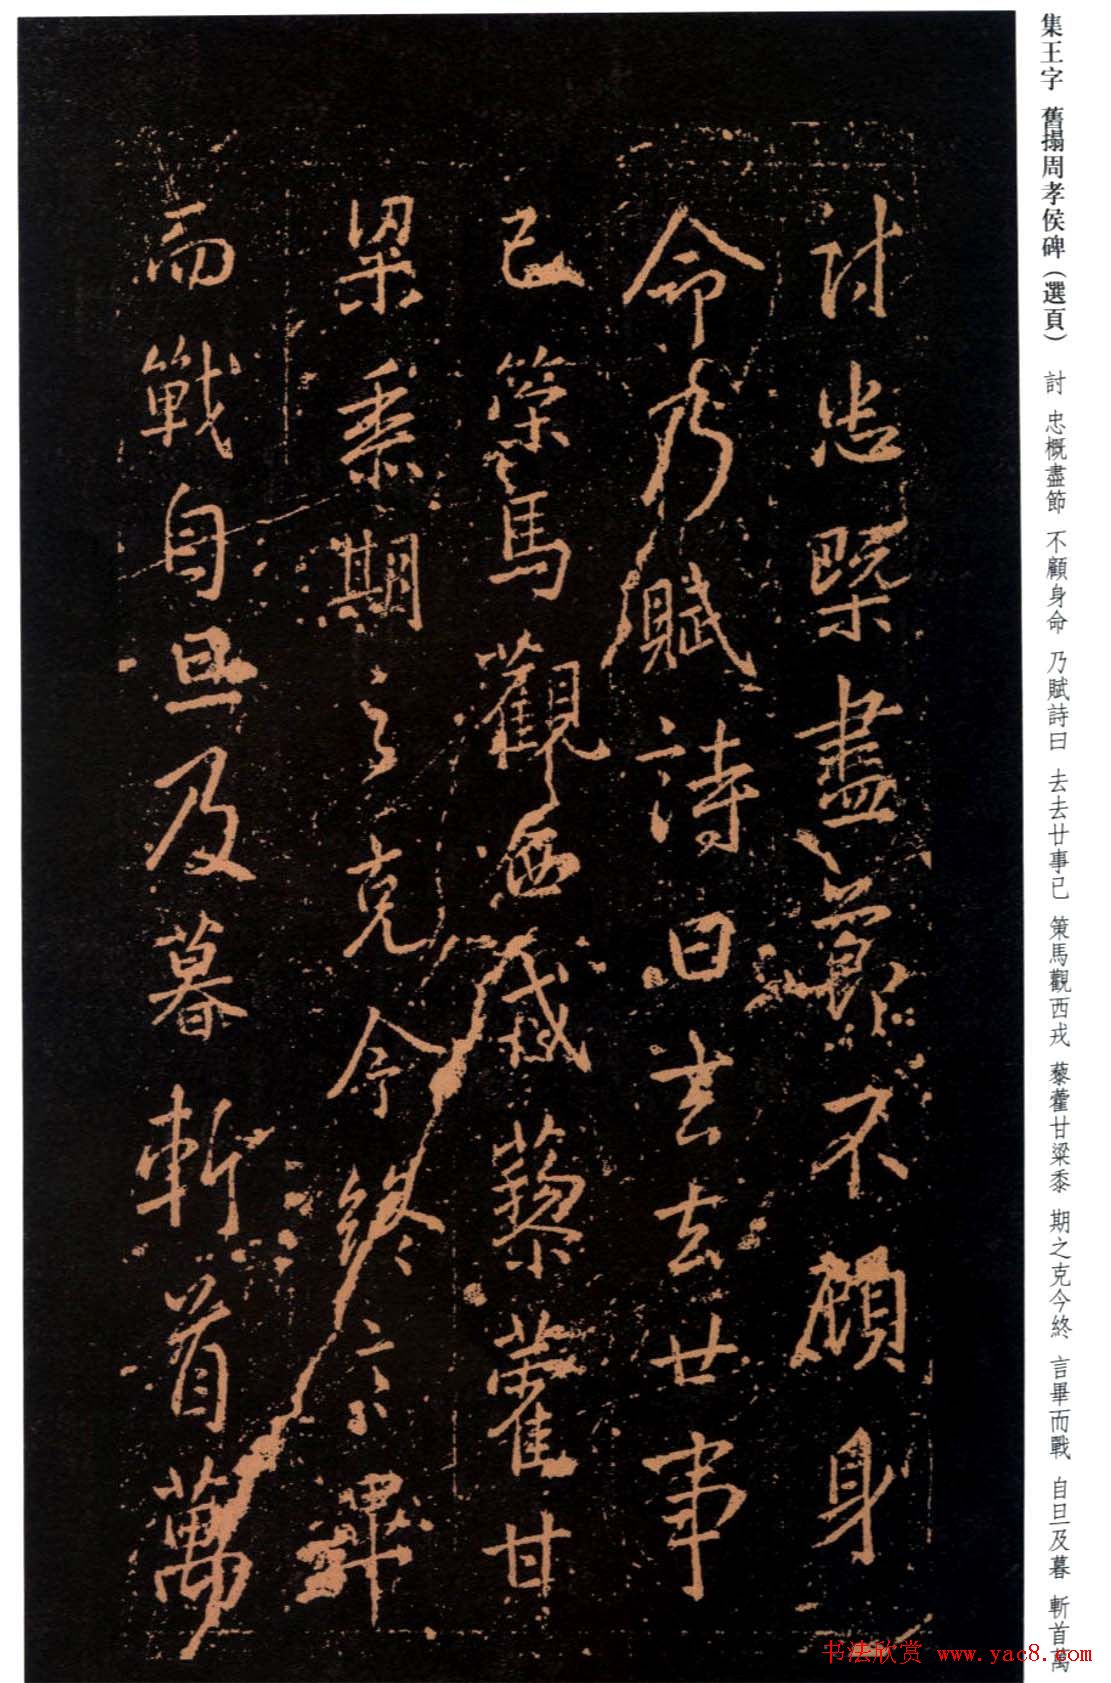 集王字 舊搨周孝侯碑（選頁） 討 忠概盡節 不顧身命 乃賦詩曰 去去廿事已 策馬觀西戎 藜藿甘粱黍 期之克今終 言畢而戰 自旦及暮 斬首萬
討忠槩盡節不顧身
命乃賦詩曰去去廿事
已策馬觀西戎藜藿甘
梁黍期之克今終言畢
而戰自旦及暮斬首萬
书法欣赏 www.yac8.com